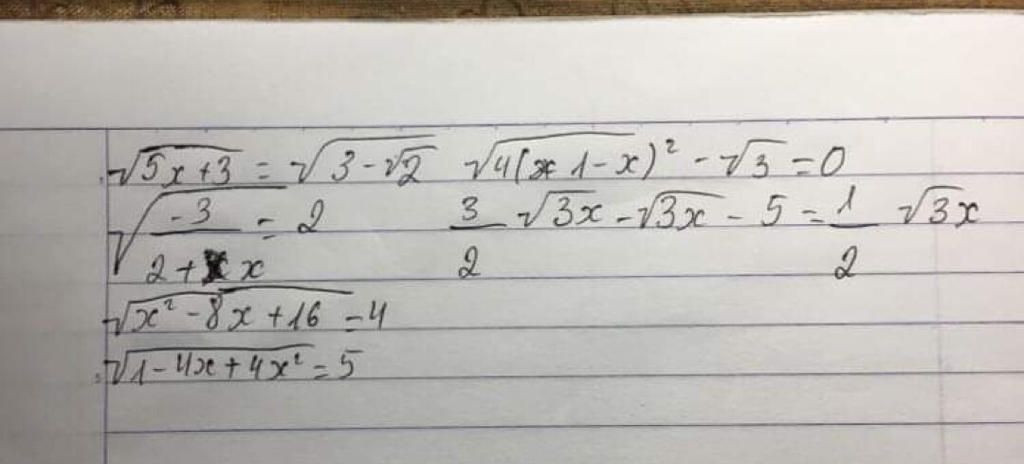 √(5x+3) = √(3-√2) √(4(1-x)²) - √3 = 0
√(-3/(2+x)) = 2 3/2 √3x - √3x - 5 = 1/2 √3x
√(x²-8x+16) = 4
√(1-4x+4x²) = 5